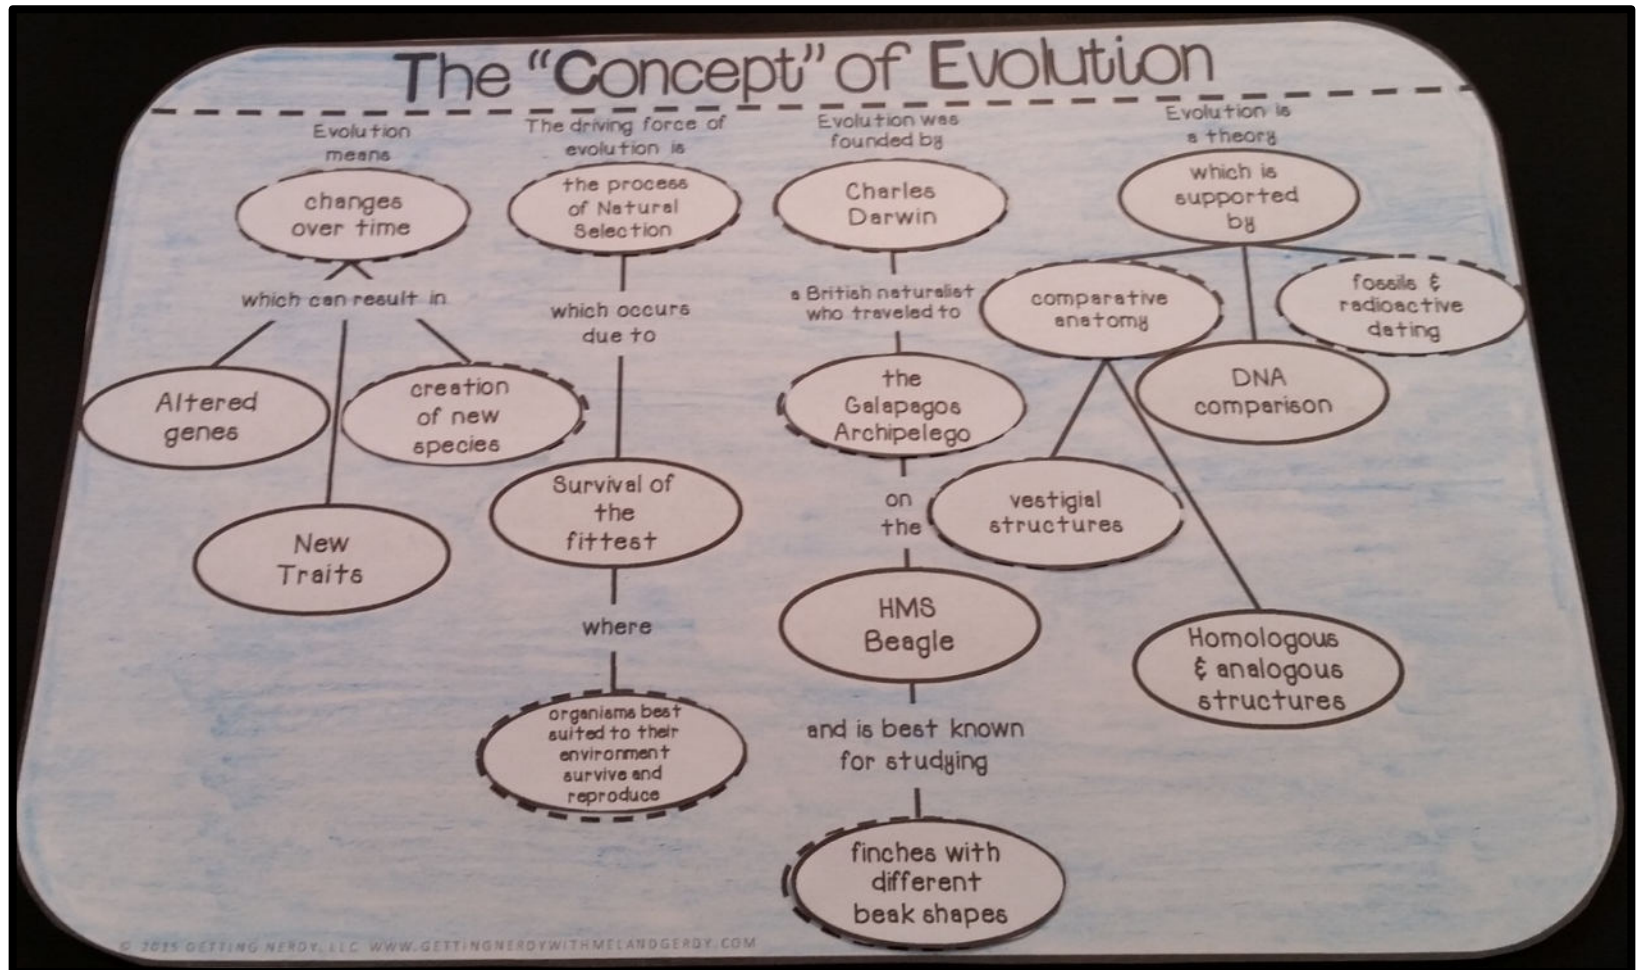 The "Concept" of Evolution
Evolution
means
changes
over time
which can result in
Altered
genes
creation
of new
species
New
Traits
The driving force of
evolution is
the process
of Natural
Selection
which occurs
due to
Survival of
the
fittest
where
organisms best
suited to their
environment
survive and
reproduce
Evolution was
founded by
Charles
Darwin
a British naturalist
who traveled to
the
Galapagos
Archipelego
on
the
HMS
Beagle
and is best known
for studying
finches with
different
beak shapes
Evolution is
a theory
which is
supported
by
comparative
anatomy
fossils &
radioactive
dating
DNA
comparison
vestigial
structures
Homologous
& analogous
structures
© 2015 GETTING NERDY, LLC WWW.GETTINGNERDYWITHMELANDGERDY.COM